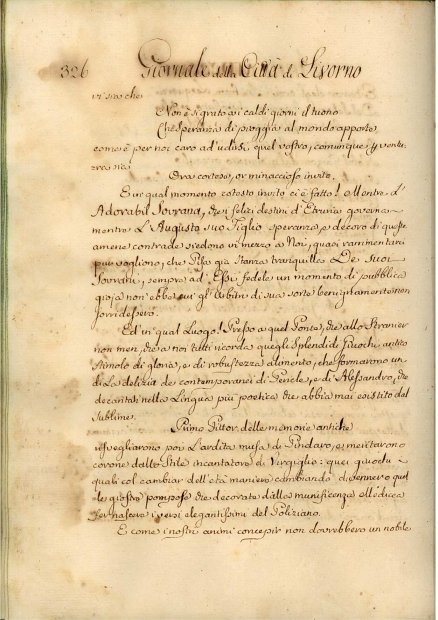 326 Giornale della Città di Livorno
vi sia che
Non è sì grato ai caldi giorni il tuono
Che speranza di pioggia al mondo apporte,
come è per noi caro ad udirsi quel vostro, comunque
Ora cortese, or minaccioso invito.
E in qual momento cotesto invito ci è fatto! Mentre l'
Adorabil Sovrana, che i felici destini d'Etruria governa
mentre L'Augusto suo Figlio speranza, e decoro di queste
amene contrade siedono in mezzo a Noi, quasi rammentar
più vogliono, che Pisa già stanza tranquilla De' suoi
Sovrani, sempre ad Essi fedele un momento di pubblica
gioja non ebbe cui gl'Arbitri di sua sorte benignamente non
sorridessero.
Ed in qual Luogo! Presso a quel Ponte, che allo Stranier
non men, che a noi tutti ricorda quegli Splendidi Giuochi, antico
Stimolo di gloria, e di robustezza alimento, che formarono un
dì La delizia de contemporanei di Pericle, e di Alessandro, che
decantati nella Lingua più poetica che abbia mai esistito del
Sublime
Primo Pittor delle memorie antiche
risvegliarono poi L'ardita musa di Pindaro, e meritarono
corone dallo Stile incantatore di Virgilio: quei giuochi
quali col cambiar dell'età maniere cambiando divennero quel
le giostre pompose che decorate dalla munificenza Medicea
fer nascere i versi elegantissimi del Poliziano.
E come i nostri animi concepir non dovrebbero un nobile